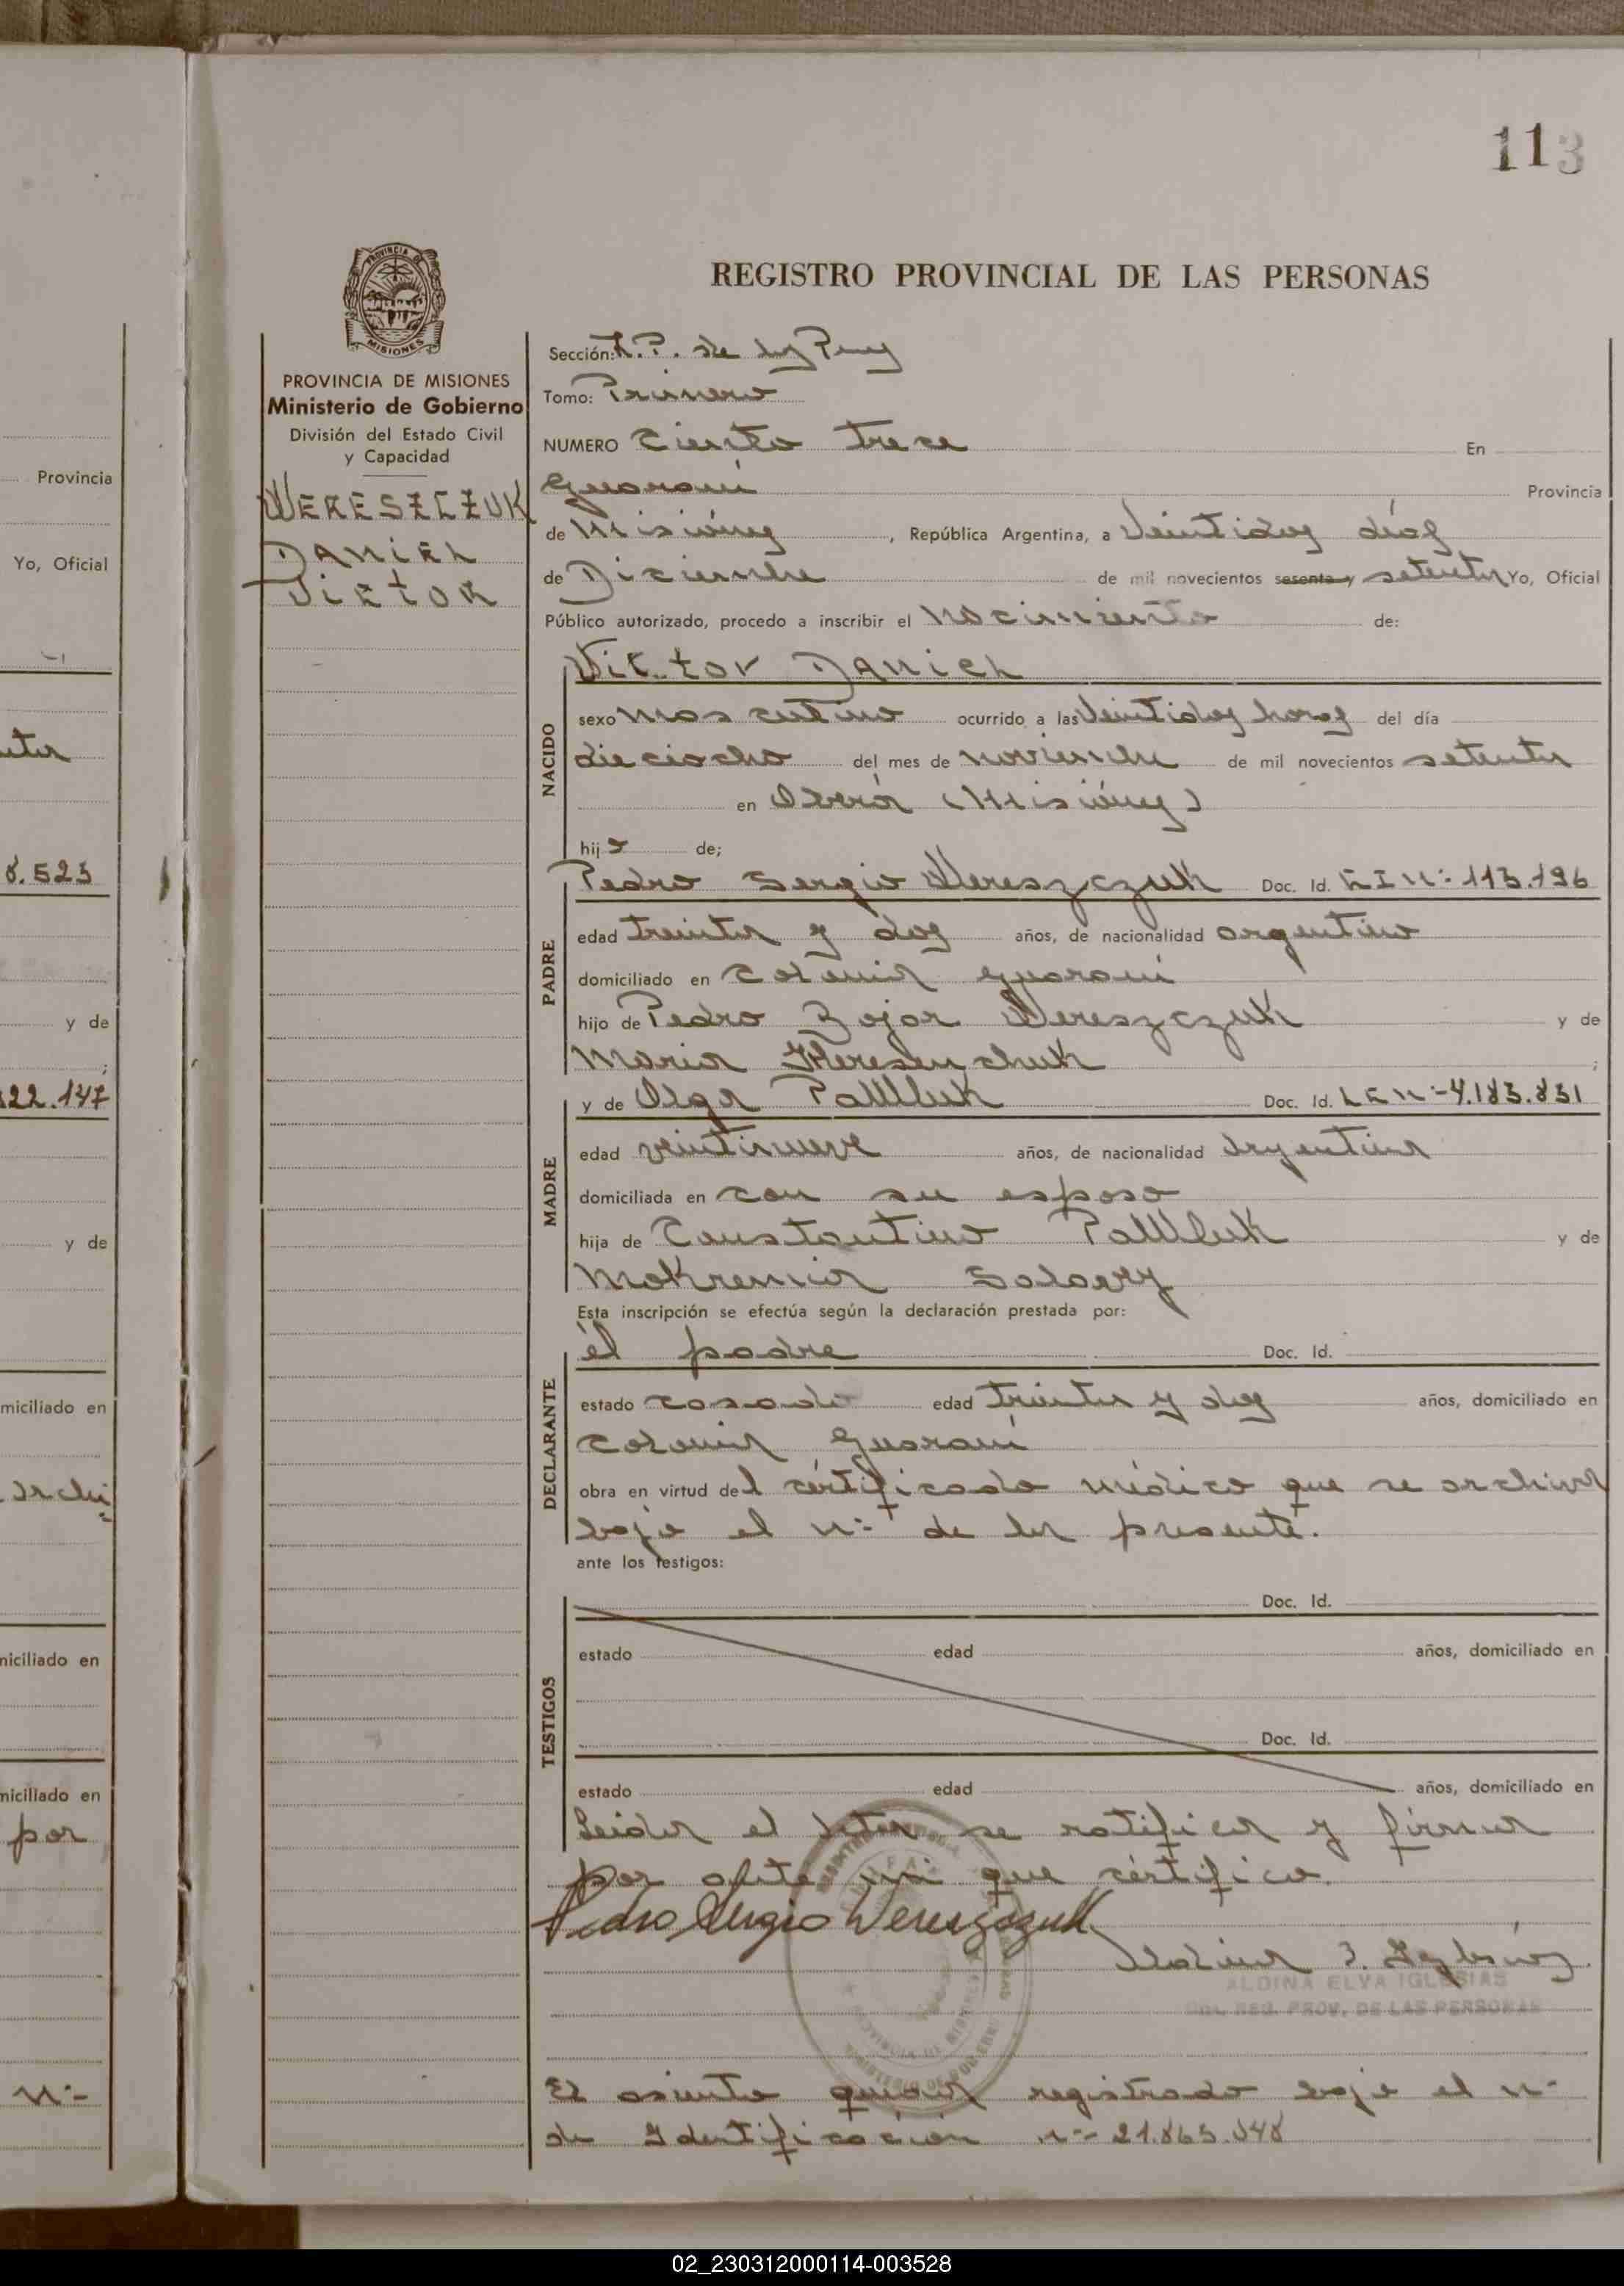 113
REGISTRO PROVINCIAL DE LAS PERSONAS
PROVINCIA DE MISIONES
MISIONES
PROVINCIA DE MISIONES
Ministerio de Gobierno
División del Estado Civil
y Capacidad
WERESZCZUK
DANIEL
VICTOR
Sección: R.P. de las
Tomo: Primero
NUMERO Ciento trece En
Guaraní Provincia
de Misiones, República Argentina, a Veintidos días
de Diciembre de mil novecientos sesenta y setenta Yo, Oficial
Público autorizado, procedo a inscribir el nacimiento de:
NACIDO
Victor Daniel
sexo masculino ocurrido a las Veintidos horas del día
dieciocho del mes de noviembre de mil novecientos setenta
en Oberá (Misiones)
hijo de;
PADRE
Pedro Sergio Wereszczuk Doc. Id. N:- 113.196
edad treinta y dos años, de nacionalidad argentino
domiciliado en Colonia Guaraní
hijo de Pedro Wereszczuk y de
Maria ;
MADRE
y de Olga Pawluk Doc. Id. N:- 4.183.831
edad veintinueve años, de nacionalidad argentina
domiciliada en con su esposo
hija de Constantino Pawluk y de
Esta inscripción se efectúa según la declaración prestada por:
DECLARANTE
él padre Doc. Id.
estado casado edad treinta y dos años, domiciliado en
Colonia Guaraní
obra en virtud del certificado médico que se archiva
bajo el n:- de la presente.
ante los testigos:
TESTIGOS
Doc. Id.
estado edad años, domiciliado en
Doc. Id.
estado edad años, domiciliado en
Leida el acta se ratifica y firma
por ante mi que certifico.
Pedro Sergio Wereszczuk
ALDINA ELVA IGLESIAS
REG. PROV. DE LAS PERSONAS
El asiento registrado bajo el n:-
de Identificación n:- 21.863.048
Provincia
Yo, Oficial
8.523
y de
;
22.147
y de
miciliado en
niciliado en
niciliado en
por
n:-
02_230312000114-003528